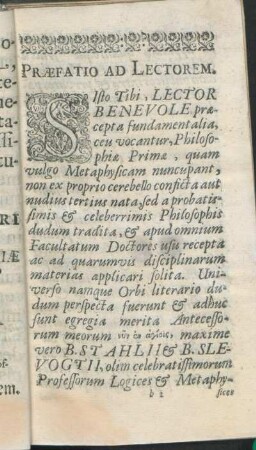 PRÆFATIO AD LECTOREM.
SIsto Tibi, LECTOR
BENEVOLE, præ-
cepta fundamentalia,
ceu vocantur, Philoso-
phiæ Primæ, quam
vulgo Metaphysicam nuncupant,
non ex proprio cerebello conficta aut
nudius tertius nata, sed a probatis-
simis & celeberrimis Philosophis
dudum tradita, & apud omnium
Facultatum Doctores usu recepta
ac ad quarumvis disciplinarum
materias applicari solita. Uni-
verso namque Orbi literario du-
dum perspecta fuerunt & adhuc
sunt egregia merita Antecesso-
rum meorum maxime
vero B. STAHLII & B. SLE-
VOGTII, olim celebratissimorum
Professorum Logices & Metaphy-
b 2 sices